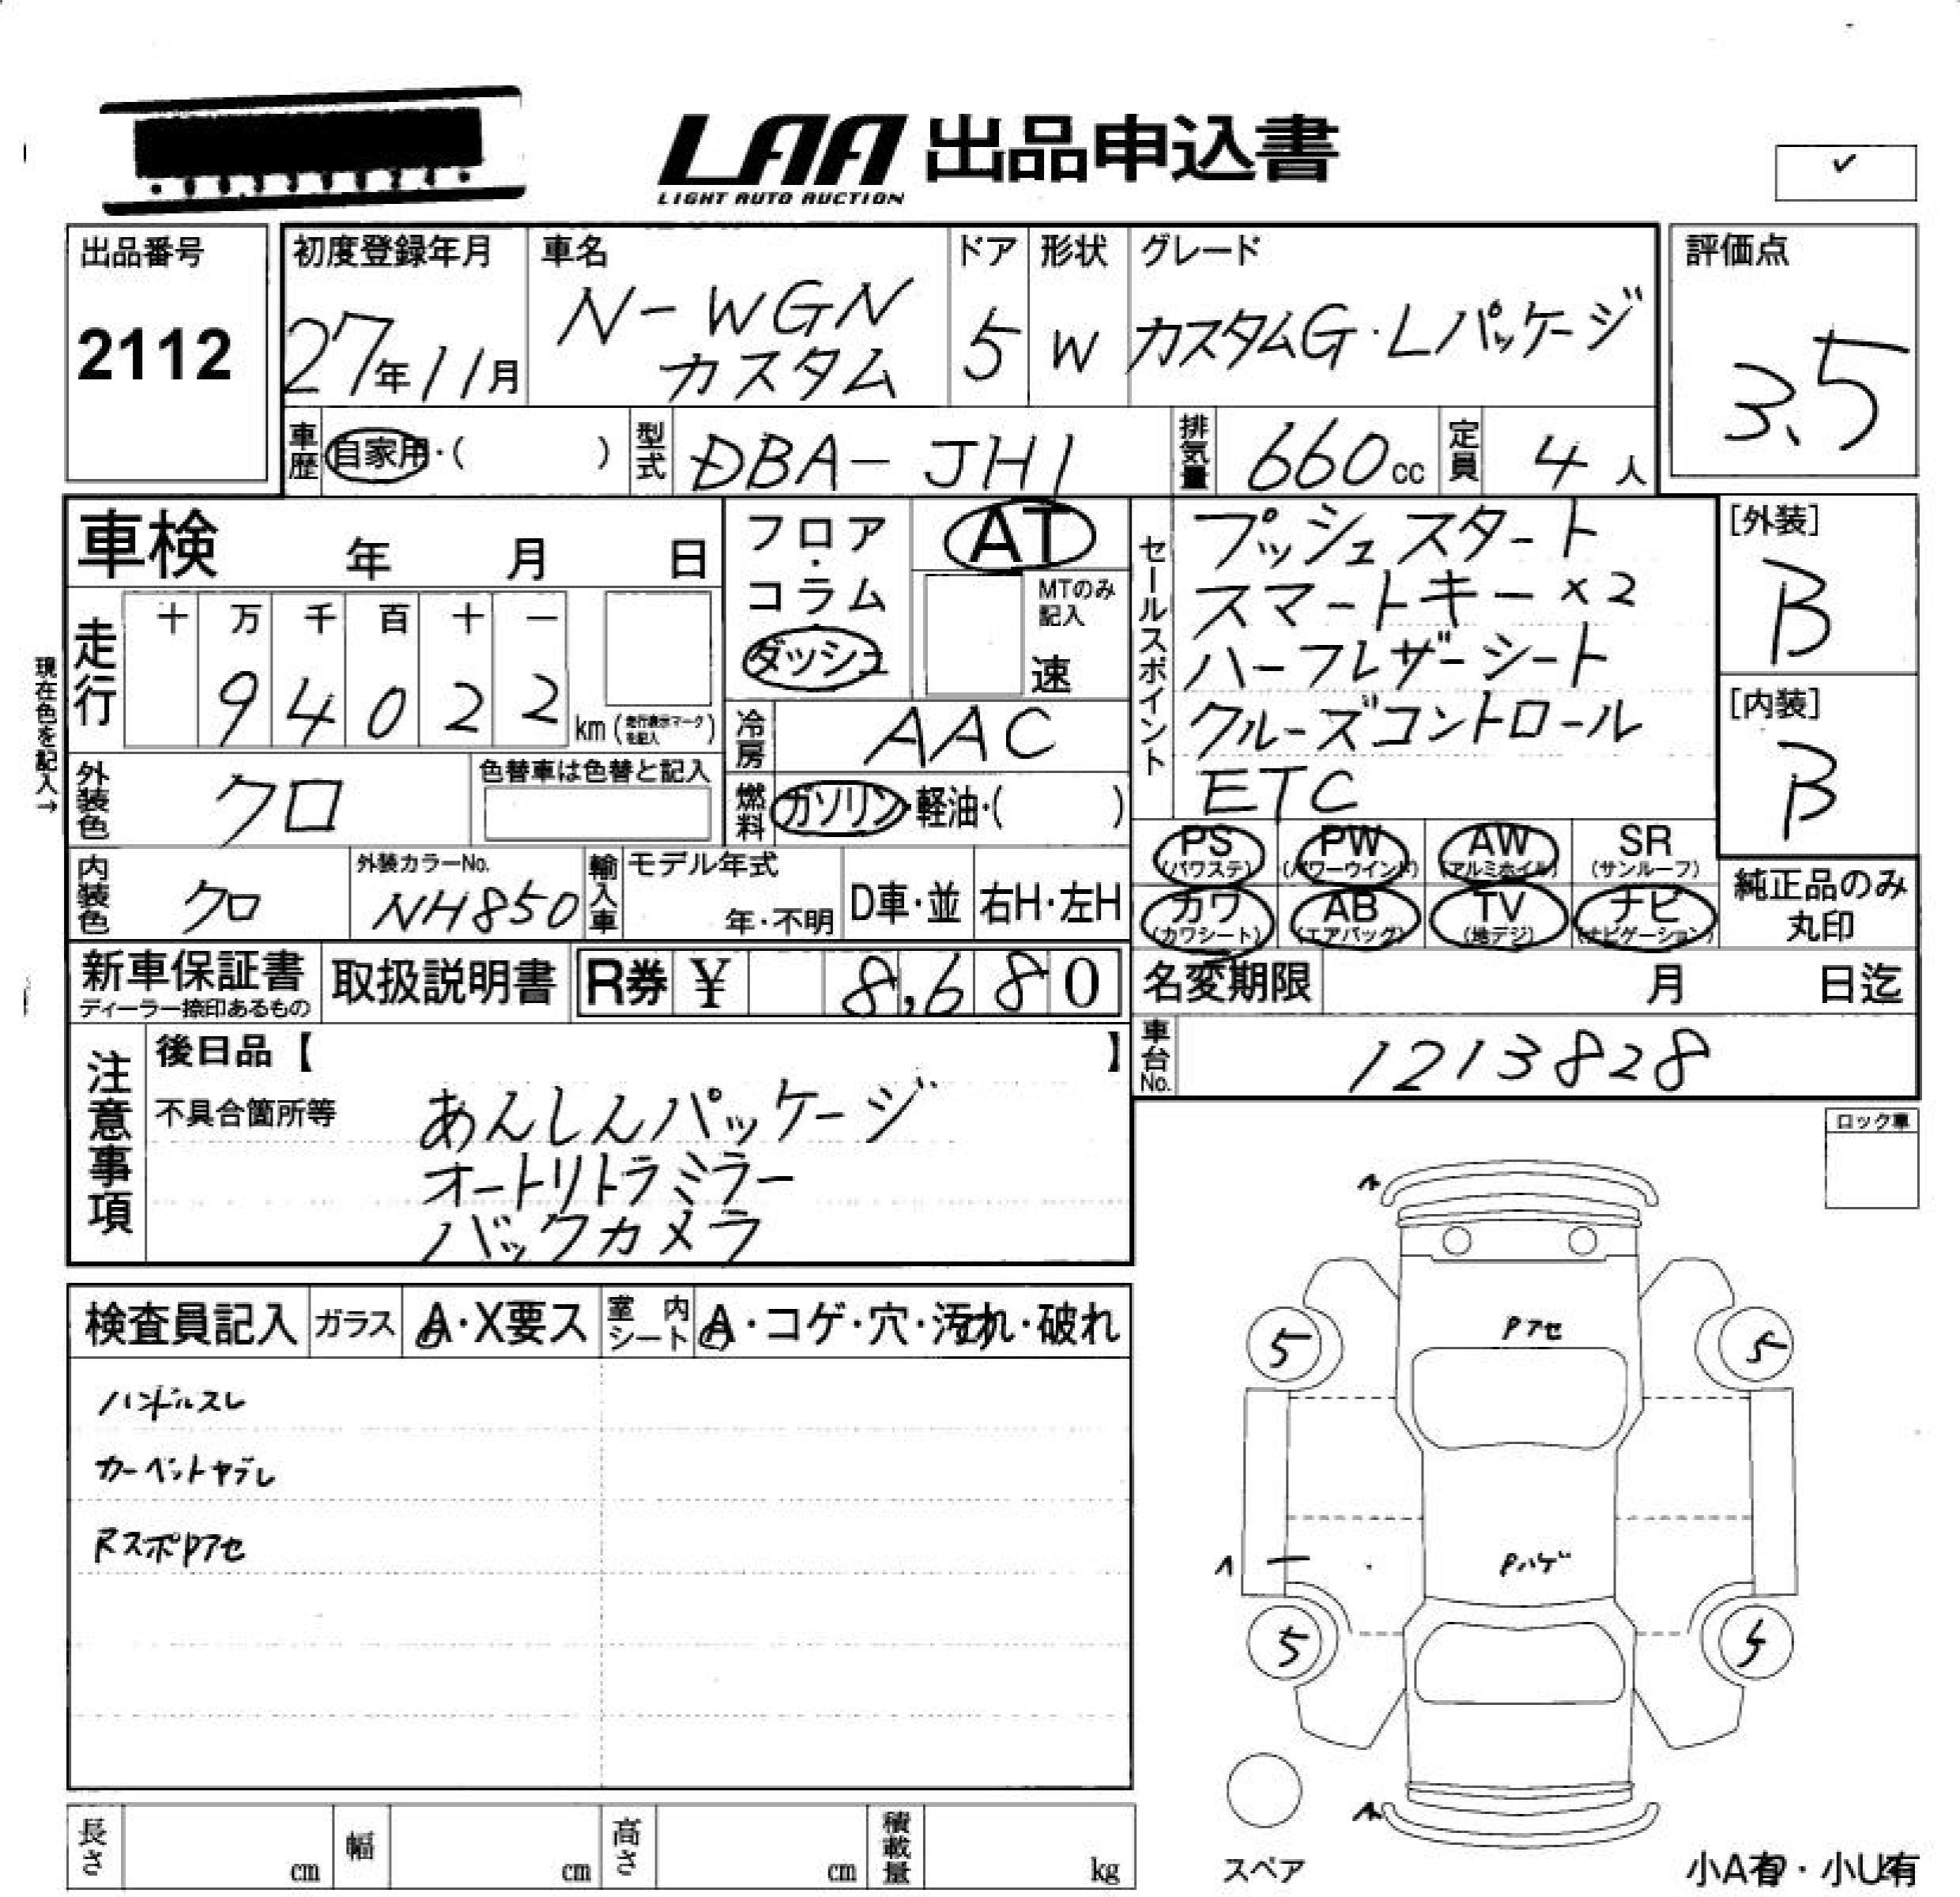 LAA 出品申込書
LIGHT AUTO AUCTION
✓
出品番号
2112
初度登録年月
27年11月
車名
N-WGN
カスタム
ドア
5
形状
W
グレード
カスタムG・Lパッケージ
評価点
3.5
車歴
自家用・( )
型式
DBA-JH1
排気量
660cc
定員
4人
車検 年 月 日
フロア・
コラム・
ダッシュ
AT
MTのみ
記入
速
セールスポイント
プッシュスタート
スマートキー×2
ハーフレザーシート
クルーズコントロール
ETC
[外装]
B
[内装]
B
現在色を記入→
走行
十 万 千 百 十 一
9 4 0 2 2 km (走行表示マークを記入)
冷房
AAC
外装色
クロ
色替車は色替と記入
燃料
ガソリン・軽油・( )
PS (パワステ)
PW (パワーウインド)
AW (アルミホイル)
SR (サンルーフ)
カワ (カワシート)
AB (エアバッグ)
TV (地デジ)
ナビ (ナビゲーション)
純正品のみ
丸印
内装色
クロ
外装カラーNo.
NH850
輸入車
モデル年式
年・不明
D車・並
右H・左H
新車保証書
ディーラー捺印あるもの
取扱説明書
R券 ¥ 8,680
名変期限 月 日迄
車台No.
1213828
注意事項
後日品【 】
不具合箇所等
あんしんパッケージ
オートリトラミラー
バックカメラ
ロック車
検査員記入
ガラス
A・X要ス
室内シート
A・コゲ・穴・汚れ・破れ
ハンドルスレ
カーペットヤブレ
RスポPアセ
Pアセ
5
5
Pハゲ
5
長さ cm
幅 cm
高さ cm
積載量 kg
スペア
小A有・小U有